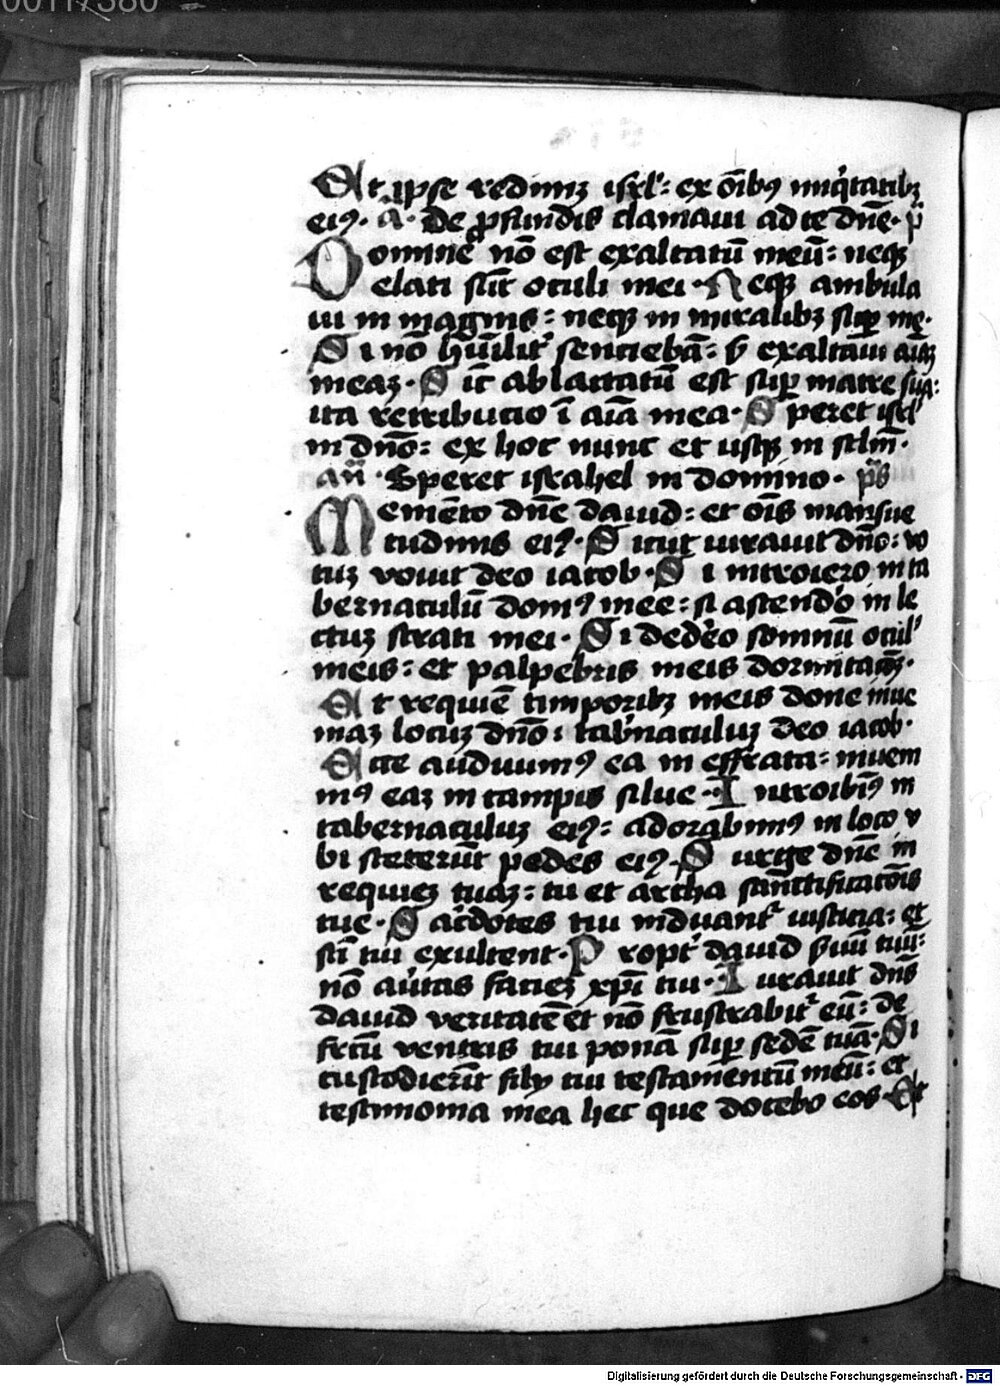 Et ipse redimꝫ isrl': ex oībꝰ iniq̇tatibꝫ
eiꝰ. a̅. De ꝓfundis clamaui ad te dn̄e. p̄
Domine nō est exaltatū meū: neqꝫ
elati sūt oculi mei. Neqꝫ ambula
ui in magnis: neqꝫ in miralibꝫ sup̱ me.
Si nō hūilit' sentiebā: s̄ exaltaui aīaꝫ
meaꝫ. Sic̄ ablactatū est sup̱ matre sua:
ita retributio ī aīa mea. Speret isrl'
in dn̄o: ex hoc nunc et usqꝫ in sclm̄.
an̄. Speret israhel in domino. p̄s
Memēto dn̄e dauid: et oīs mansue
tudinis eiꝰ. Sicut iurauit dn̄o: vo
tuꝫ vouit deo iacob. Si introiero in ta
bernaculū domꝰ mee: si ascendo in le
ctuꝫ strati mei. Si dedēo somnū ocul'
meis: et palpebris meis dormitacōꝫ.
Et requiē timporibꝫ meis donec inue
niaꝫ locuꝫ dn̄o: tab'naculuꝫ deo iacob.
Ecce audiuimꝰ ea in effrata: inuem
mꝰ eaꝫ in campis silue. Introibimꝰ in
tabernaculuꝫ eiꝰ: adorabimꝰ in loco v
bi steterūt pedes eiꝰ. Surge dn̄e in
requieꝫ tuaꝫ: tu et archa san̄ctificatōis
tue. Sac̄dotes tui induant' iusticia: et
sc̄i tui exultent. Propt' dauid s'uū tuū:
nō au'tas facieꝫ xp̄i tui. Iurauit dn̄s
dauid veritatē et nō frustrabit' eū: de
frc̄tu ventris tui ponā sup̱ sedē tuā. Si
custodierīt filij tui testamentū meū: et
testimonia mea hec que docebo eos. Et
Digitalisierung gefördert durch die Deutsche Forschungsgemeinschaft - DFG